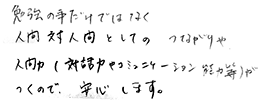 勉強の事だけではなく
人間対人間としての つながりや
人間力(対話力やコミュニケーション能力等)が
つくので、安心します。